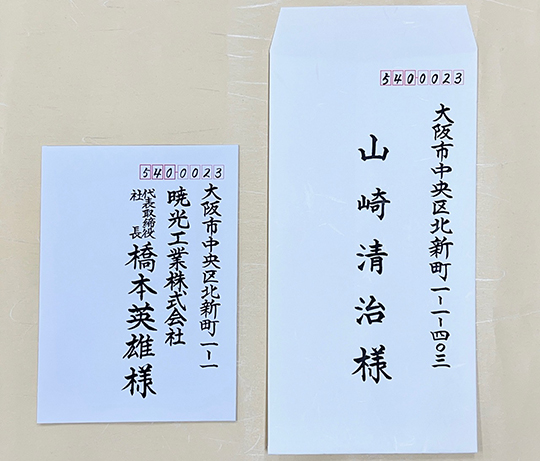 5400023
大阪市中央区北新町一-一
暁光工業株式会社
代表取締役
社長
橋本英雄様
5400023
大阪市中央区北新町一-一-四〇三
山崎清治様